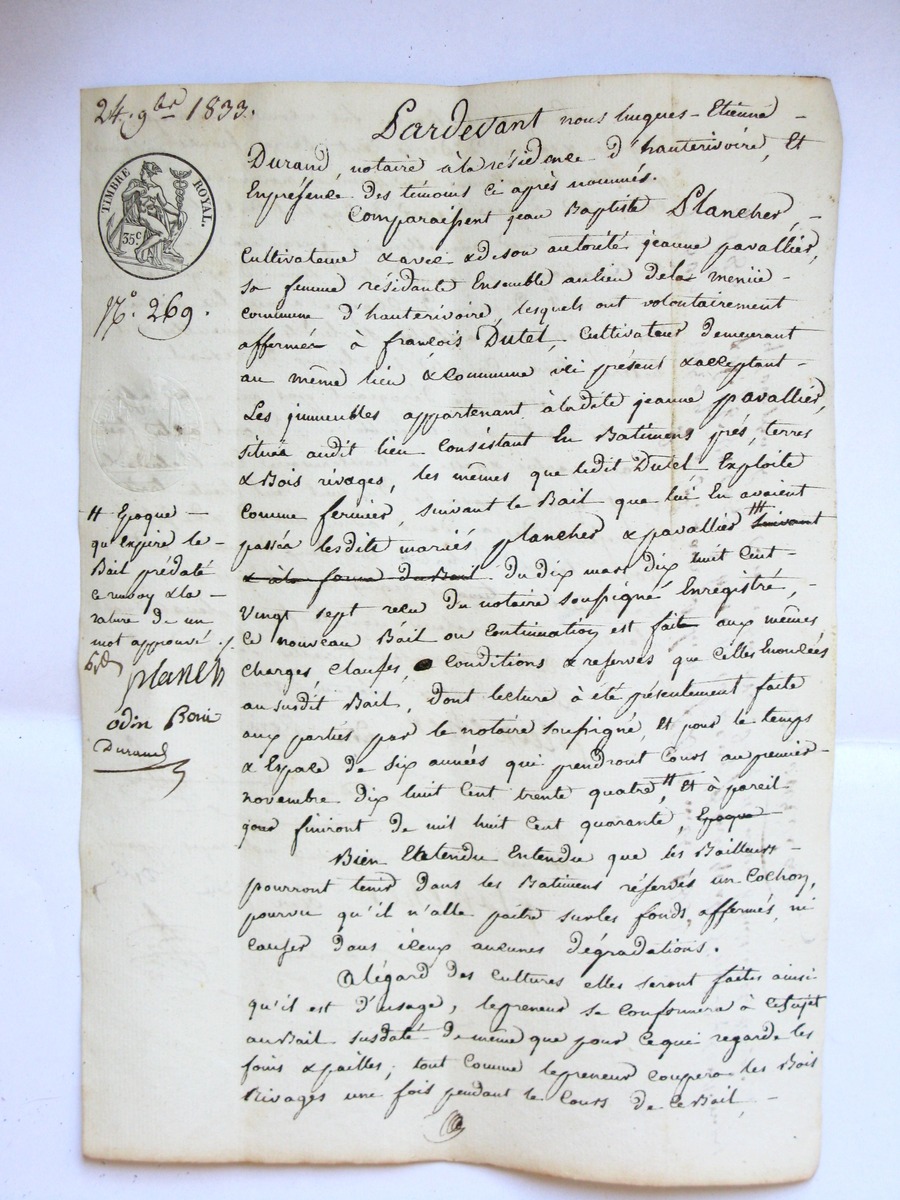 24. 9bre 1833.
TIMBRE ROYAL.
35c
No. 269.
Pardevant nous luques-Etienne
Durand, notaire à la résidence d'hauterivoire, Et
En présence des témoins ci après nommés.
Comparaissent jean Baptiste Plancher,
Cultivateur & avec & de son autorité jeanne pavallier,
sa femme résidants Ensemble au lieu de la
commune d'hauterivoire, lesquels ont volontairement
affermé à françois Dutel, Cultivateur demeurant
au même lieu & Commune ici présent & acceptant
Les immeubles appartenant à ladite jeanne pavallier,
situés audit lieu Consistant En Batimens prés, terres
& Bois rivages, les mêmes que ledit Dutel Exploite
Comme fermier, suivant le Bail que lui En avaient
passé lesdits mariés plancher & pavallier suivant
& à la forme du Bail du dix mars dix huit Cent
vingt sept reçu du notaire soussigné Enregistré,
Ce nouveau Bail ou Continuation est fait aux mêmes
charges, clauses, Conditions & reserves que Celles Enoncées
au susdit Bail, dont lecture à été présentement faite
aux parties par le notaire soussigné, Et pour le temps
& Espace de six années qui prendront Cours au premier
novembre dix huit Cent trente quatre, # Et à pareil
jour finiront de mil huit Cent quarante, Epoque
Bien Entendu que les Bailleurs
pourront tenir dans les Batimens réservés un Cochon,
pourvu qu'il n'alle paitre sur les fonds affermés, ni
Causer dans iceux aucunes dégradations.
A légard des Cultures elles seront faites ainsi
qu'il est d'usage, le preneur se Conformera à Ce sujet
au Bail susdaté de même que pour Ce qui regarde les
foins & pailles; tout Comme le preneur Coupera les Bois
Rivages une fois pendant le Cours de Ce Bail,
# Epoque
qu'Expire le
Bail prédaté
Ce renvoy & la
rature de un
mot approuvé ./.
planch
odin Boni
Durand